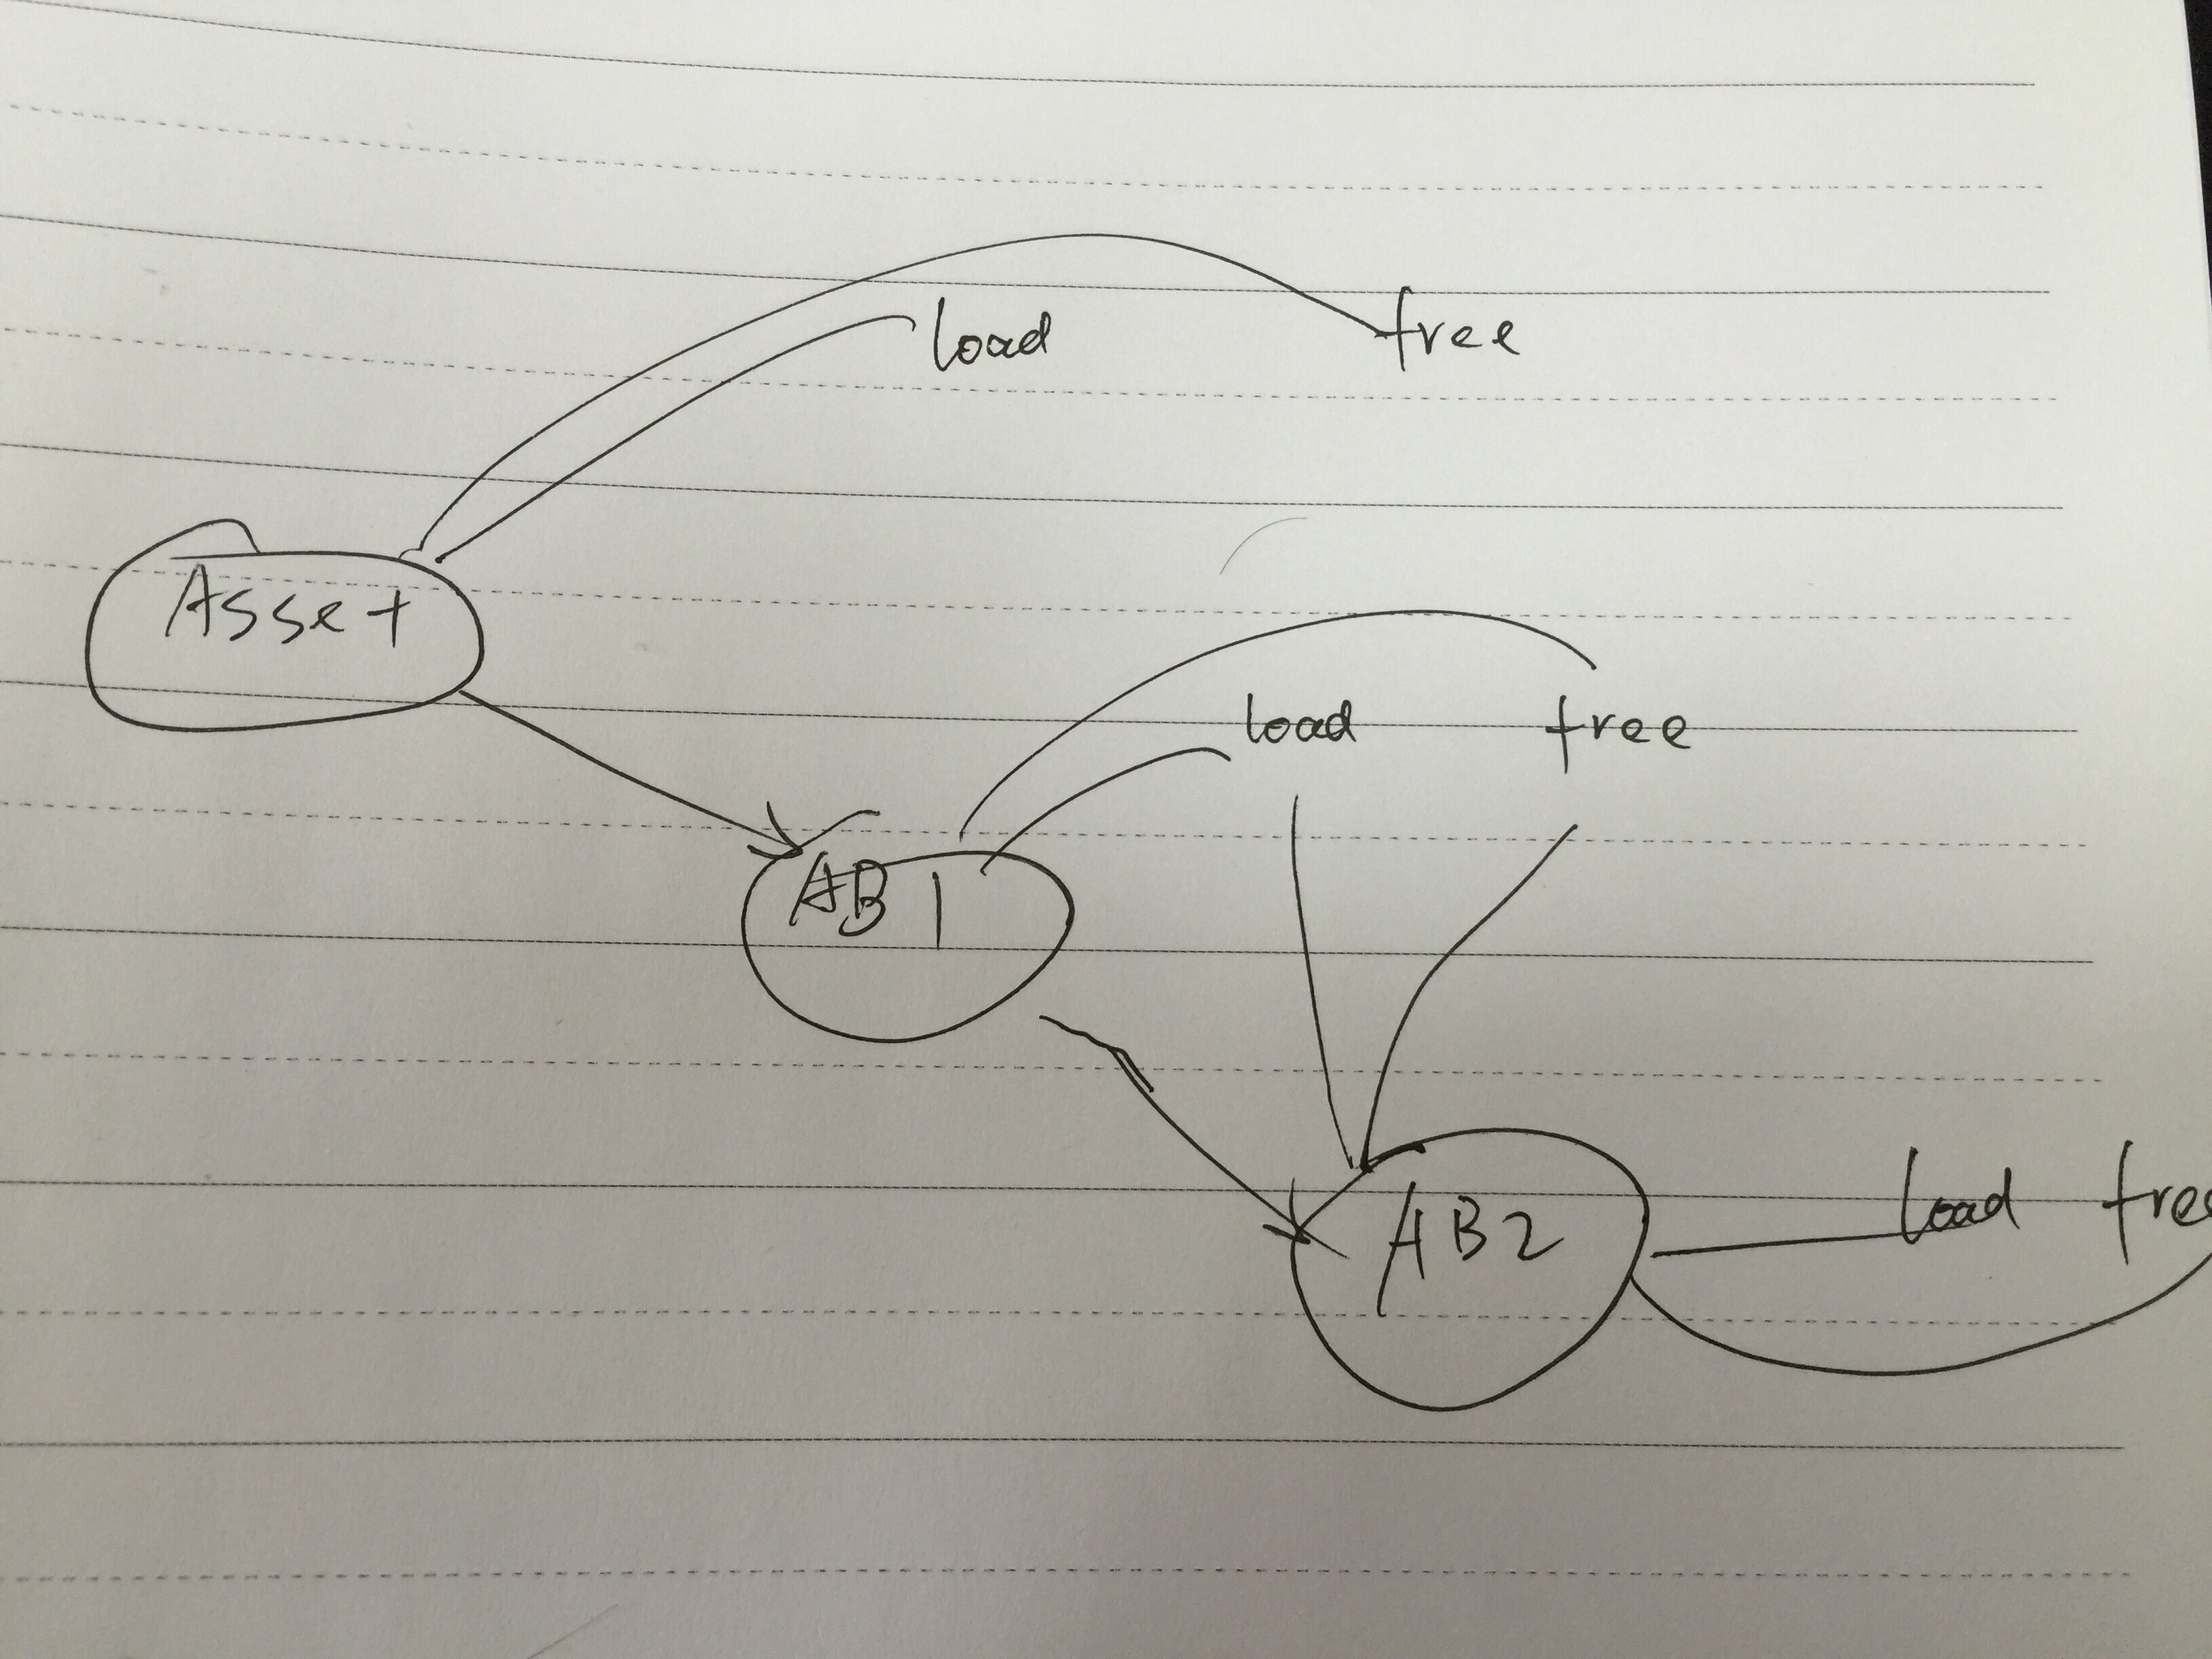 load free
Asset
load free
AB 1
load free
AB2